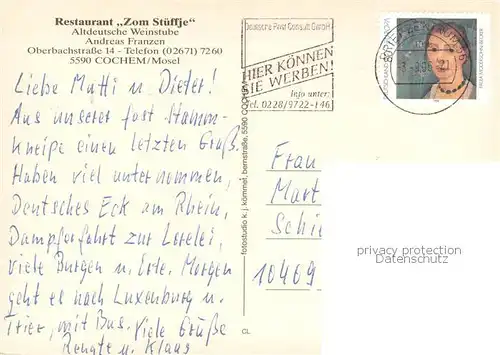 Restaurant „Zom Stüffje"
Altdeutsche Weinstube
Andreas Franzen
Oberbachstraße 14 - Telefon (02671) 7260
5590 COCHEM/Mosel
Liebe Mutti u. Dieter!
Aus unserer fast Stamm-
kneipe einen letzten Gruß.
Haben viel unternommen,
Deutsches Eck am Rhein,
Dampferfahrt zur Lorelei,
viele Burgen u. Orte. Morgen
geht es nach Luxenburg u.
Trier, mit Bus. Viele Grüße
Renate u. Klaus
fotostudio k. j. kömmof, bernstraße, 5590 COCHEM
CL
HIER KÖNNEN
SIE WERBEN!
Info unter:
Tel. 0228/9722-146
Frau
Mart
Schi
10409
privacy protection
Datenschutz